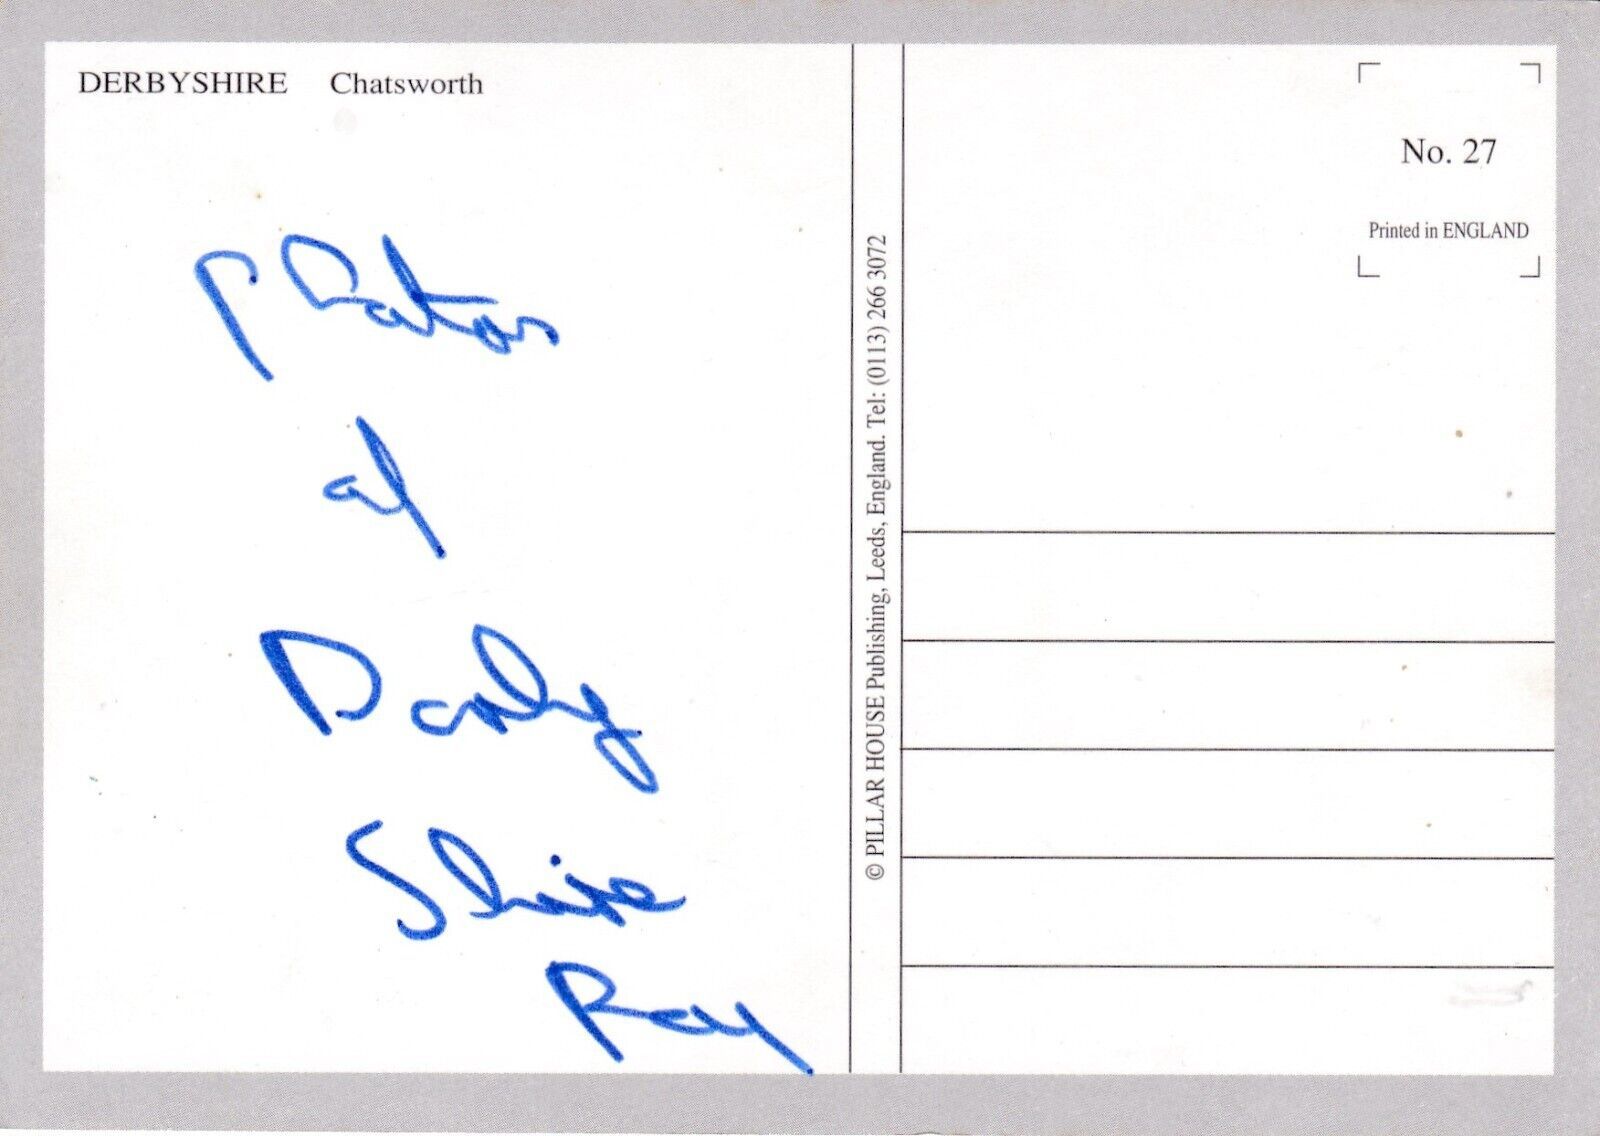 DERBYSHIRE Chatsworth
Photos
of
Darby
Shire
Ray
© PILLAR HOUSE Publishing, Leeds, England. Tel: (0113) 266 3072
No. 27
Printed in ENGLAND